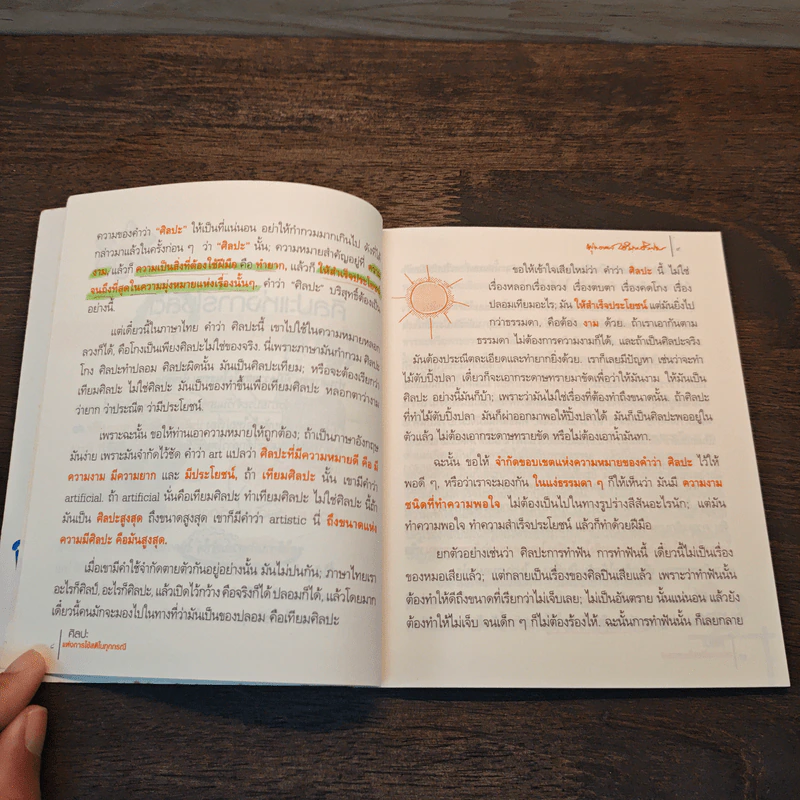 ความของคำว่า "ศิลปะ" ให้เป็นที่แน่นอน อย่าให้กำกวมมากเกินไป ดังที่ได้
กล่าวมาแล้วในครั้งก่อน ๆ ว่า "ศิลปะ" นั้น; ความหมายสำคัญอยู่ที่ ความ
งาม, แล้วก็ ความเป็นสิ่งที่ต้องใช้ฝีมือ คือ ทำยาก, แล้วก็ ให้สำเร็จประโยชน์
จนถึงที่สุดในความมุ่งหมายแห่งเรื่องนั้นๆ, คำว่า "ศิลปะ" บริสุทธิ์ต้องเป็น
อย่างนี้.
แต่เดี๋ยวนี้ในภาษาไทย คำว่า ศิลปะนี้ เขาไปใช้ในความหมายหลอก
ลวงก็ได้, คือโกงเป็นเพียงศิลปะไม่ใช่ของจริง. นี่เพราะภาษามันกำกวม ศิลปะ
โกง ศิลปะทำปลอม ศิลปะผิดนั้น มันเป็นศิลปะเทียม; หรือจะต้องเรียกว่า
เทียมศิลปะ ไม่ใช่ศิลปะ มันเป็นของทำขึ้นเพื่อเทียมศิลปะ หลอกตาว่างาม
ว่ายาก ว่าประณีต ว่ามีประโยชน์.
เพราะฉะนั้น ขอให้ท่านเอาความหมายให้ถูกต้อง; ถ้าเป็นภาษาอังกฤษ
มันง่าย เพราะมันจำกัดไว้ชัด คำว่า art แปลว่า ศิลปะที่มีความหมายดี คือ มี
ความงาม มีความยาก และ มีประโยชน์, ถ้า เทียมศิลปะ นั้น เขามีคำว่า
artificial. ถ้า artificial นั้นคือเทียมศิลปะ ทำเทียมศิลปะ ไม่ใช่ศิลปะ นี้ถ้า
มันเป็น ศิลปะสูงสุด ถึงขนาดสูงสุด เขาก็มีคำว่า artistic นี่ ถึงขนาดแห่ง
ความมีศิลปะ คือมันสูงสุด.
เมื่อเขามีคำใช้จำกัดตายตัวกันอยู่อย่างนั้น มันไม่ปนกัน; ภาษาไทยเรา
อะไรก็ศิลป์, อะไรก็ศิลปะ, แล้วเปิดไว้กว้าง คือจริงก็ได้ ปลอมก็ได้, แล้วโดยมาก
เดี๋ยวนี้คนมักจะมองไปในทางที่ว่ามันเป็นของปลอม คือเทียมศิลปะ
ศิลปะ
แห่งการใช้สติในทุกกรณี
ขอให้เข้าใจเสียใหม่ว่า คำว่า ศิลปะ นี้ ไม่ใช่
เรื่องหลอกเรื่องลวง เรื่องตบตา เรื่องคดโกง เรื่อง
ปลอมเทียมอะไร; มัน ให้สำเร็จประโยชน์ แต่มันยิ่งไป
กว่าธรรมดา, คือต้อง งาม ด้วย. ถ้าเราเอากันตาม
ธรรมดา ไม่ต้องการความงามก็ได้, และถ้าเป็นศิลปะจริง
มันต้องประณีตละเอียดและทำยากยิ่งด้วย. เราก็เลยมีปัญหา เช่นว่าจะทำ
ไม้ตับปิ้งปลา เดี๋ยวก็จะเอากระดาษทรายมาขัดเพื่อว่าให้มันงาม ให้มันเป็น
ศิลปะ อย่างนี้มันก็บ้า; เพราะว่ามันไม่ใช่เรื่องที่ต้องทำถึงขนาดนั้น. ถ้าศิลปะ
ที่ทำไม้ตับปิ้งปลา มันก็ผ่าออกมาพอให้ปิ้งปลาได้ มันก็เป็นศิลปะพออยู่ใน
ตัวแล้ว ไม่ต้องเอากระดาษทรายขัด หรือไม่ต้องเอาน้ำมันทา.
ฉะนั้น ขอให้ จำกัดขอบเขตแห่งความหมายของคำว่า ศิลปะ ไว้ให้
พอดี ๆ, หรือว่าเราจะมองกัน ในแง่ธรรมดา ๆ ก็ให้เห็นว่า มันมี ความงาม
ชนิดที่ทำความพอใจ ไม่ต้องเป็นไปในทางรูปร่างสีสันอะไรนัก; แต่มัน
ทำความพอใจ ทำความสำเร็จประโยชน์ แล้วก็ทำด้วยฝีมือ
ยกตัวอย่างเช่นว่า ศิลปะการทำฟัน การทำฟันนี้ เดี๋ยวนี้ไม่เป็นเรื่อง
ของหมอเสียแล้ว; แต่กลายเป็นเรื่องของศิลปินเสียแล้ว เพราะว่าทำฟันนั้น
ต้องทำให้ดีถึงขนาดที่เรียกว่าไม่เจ็บเลย; ไม่เป็นอันตราย นั้นแน่นอน แล้วยัง
ต้องทำให้ไม่เจ็บ จนเด็ก ๆ ก็ไม่ต้องร้องไห้. ฉะนั้นการทำฟันนั้น ก็เลยกลาย